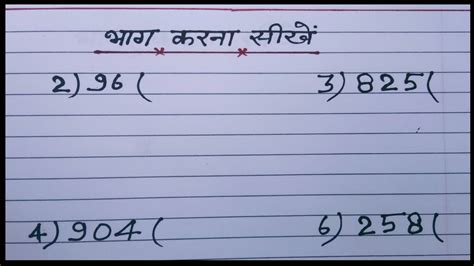 भाग करना सीखें
2)96( 3)825(
4)904( 6)258(